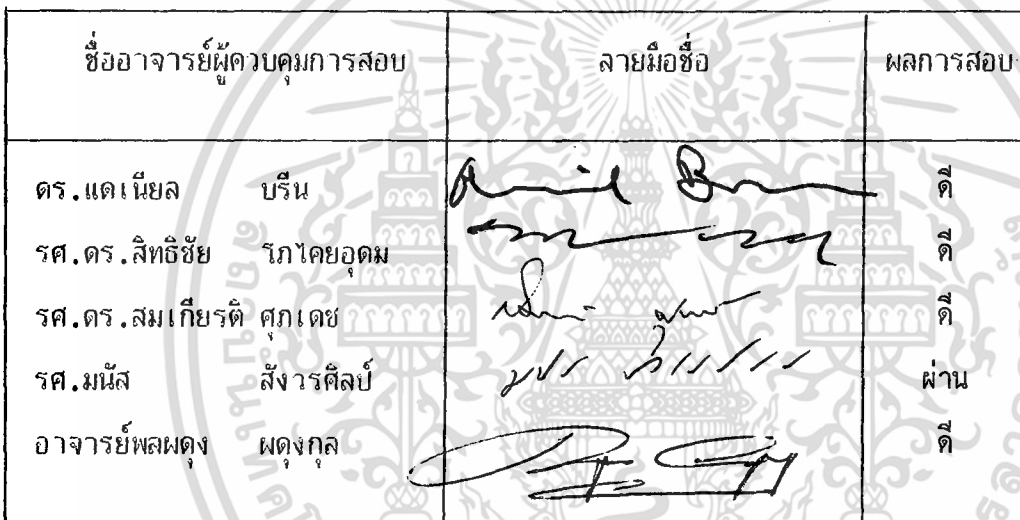 ชื่ออาจารย์ผู้ควบคุมการสอบ ลายมือชื่อ ผลการสอบ
ดร.แดเนียล บรีน ดี
รศ.ดร.สิทธิชัย โภไคยอุดม ดี
รศ.ดร.สมเกียรติ ศุภเดช ดี
รศ.มนัส สังวรศิลป์ ผ่าน
อาจารย์พลผดุง ผดุงกุล ดี